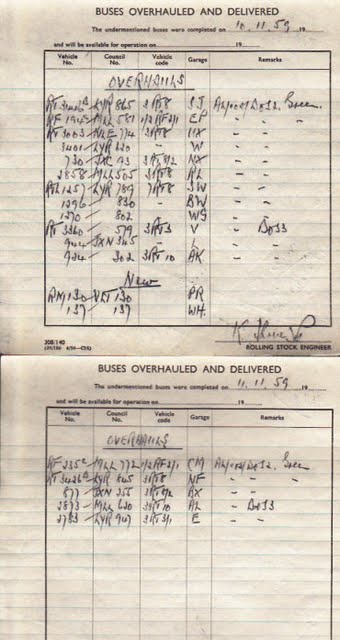 BUSES OVERHAULED AND DELIVERED
The undermentioned buses were completed on 10.11.59 19
and will be available for operation on 19
Vehicle No. Council No. Vehicle code Garage Remarks
OVERHAULS
LYR 865 3RT8
RF 194 MLL 581 1/2RF2/1 EP " "
RT 3003 NLE 774 3RT8 " "
3401 LYR 620 " W " "
730 JXC 93 3RT3/2 NX " "
2858 MLL 505 3RT8 RL " "
RTL 1257 LYR 789 7RT8 SW " "
1296 830 " BW " "
1270 802 " WG " "
RT 3360 579 3RT3 V " Bo33
JXN 365 " L " "
924 302 3RT10 AK " "
New
RM 130 VLT 130 PR
137 137 WH.
308/140
ROLLING STOCK ENGINEER
BUSES OVERHAULED AND DELIVERED
The undermentioned buses were completed on 11.11.59 19
and will be available for operation on 19
Vehicle No. Council No. Vehicle code Garage Remarks
OVERHAULS
RF 235 MLL 772 1/2RF2/1 CM
LYR 845 3RT8 NF " "
877 JXN 255 AX " "
2873 MLL 620 3RT10 AL " Bo33
2783 LYR 947 3RT3/1 E " "